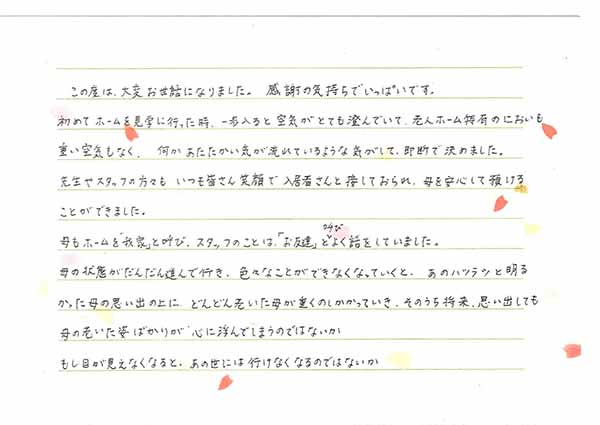 この度は、大変お世話になりました。 感謝の気持ちでいっぱいです。
初めてホームを見学に行った時、一歩入ると空気がとても澄んでいて、老人ホーム特有のにおいも
重い空気もなく、 何かあたたかい気が流れているような気がして、即断で決めました。
先生やスタッフの方々も いつも皆さん笑顔で入居者さんと接しておられ、母を安心して預ける
ことができました。
母もホームを「我家」と呼び、スタッフのことは、「お友達」と呼びよく話をしていました。
母の状態がだんだん進んで行き、色々なことができなくなっていくと、 あのハツラツと明る
かった母の思い出の上に、どんどん老いた母が重くのしかかっていき、そのうち将来、思い出しても
母の老いた姿ばかりが心に浮んでしまうのではないか
もし目が見えなくなると、あの世には行けなくなるのではないか